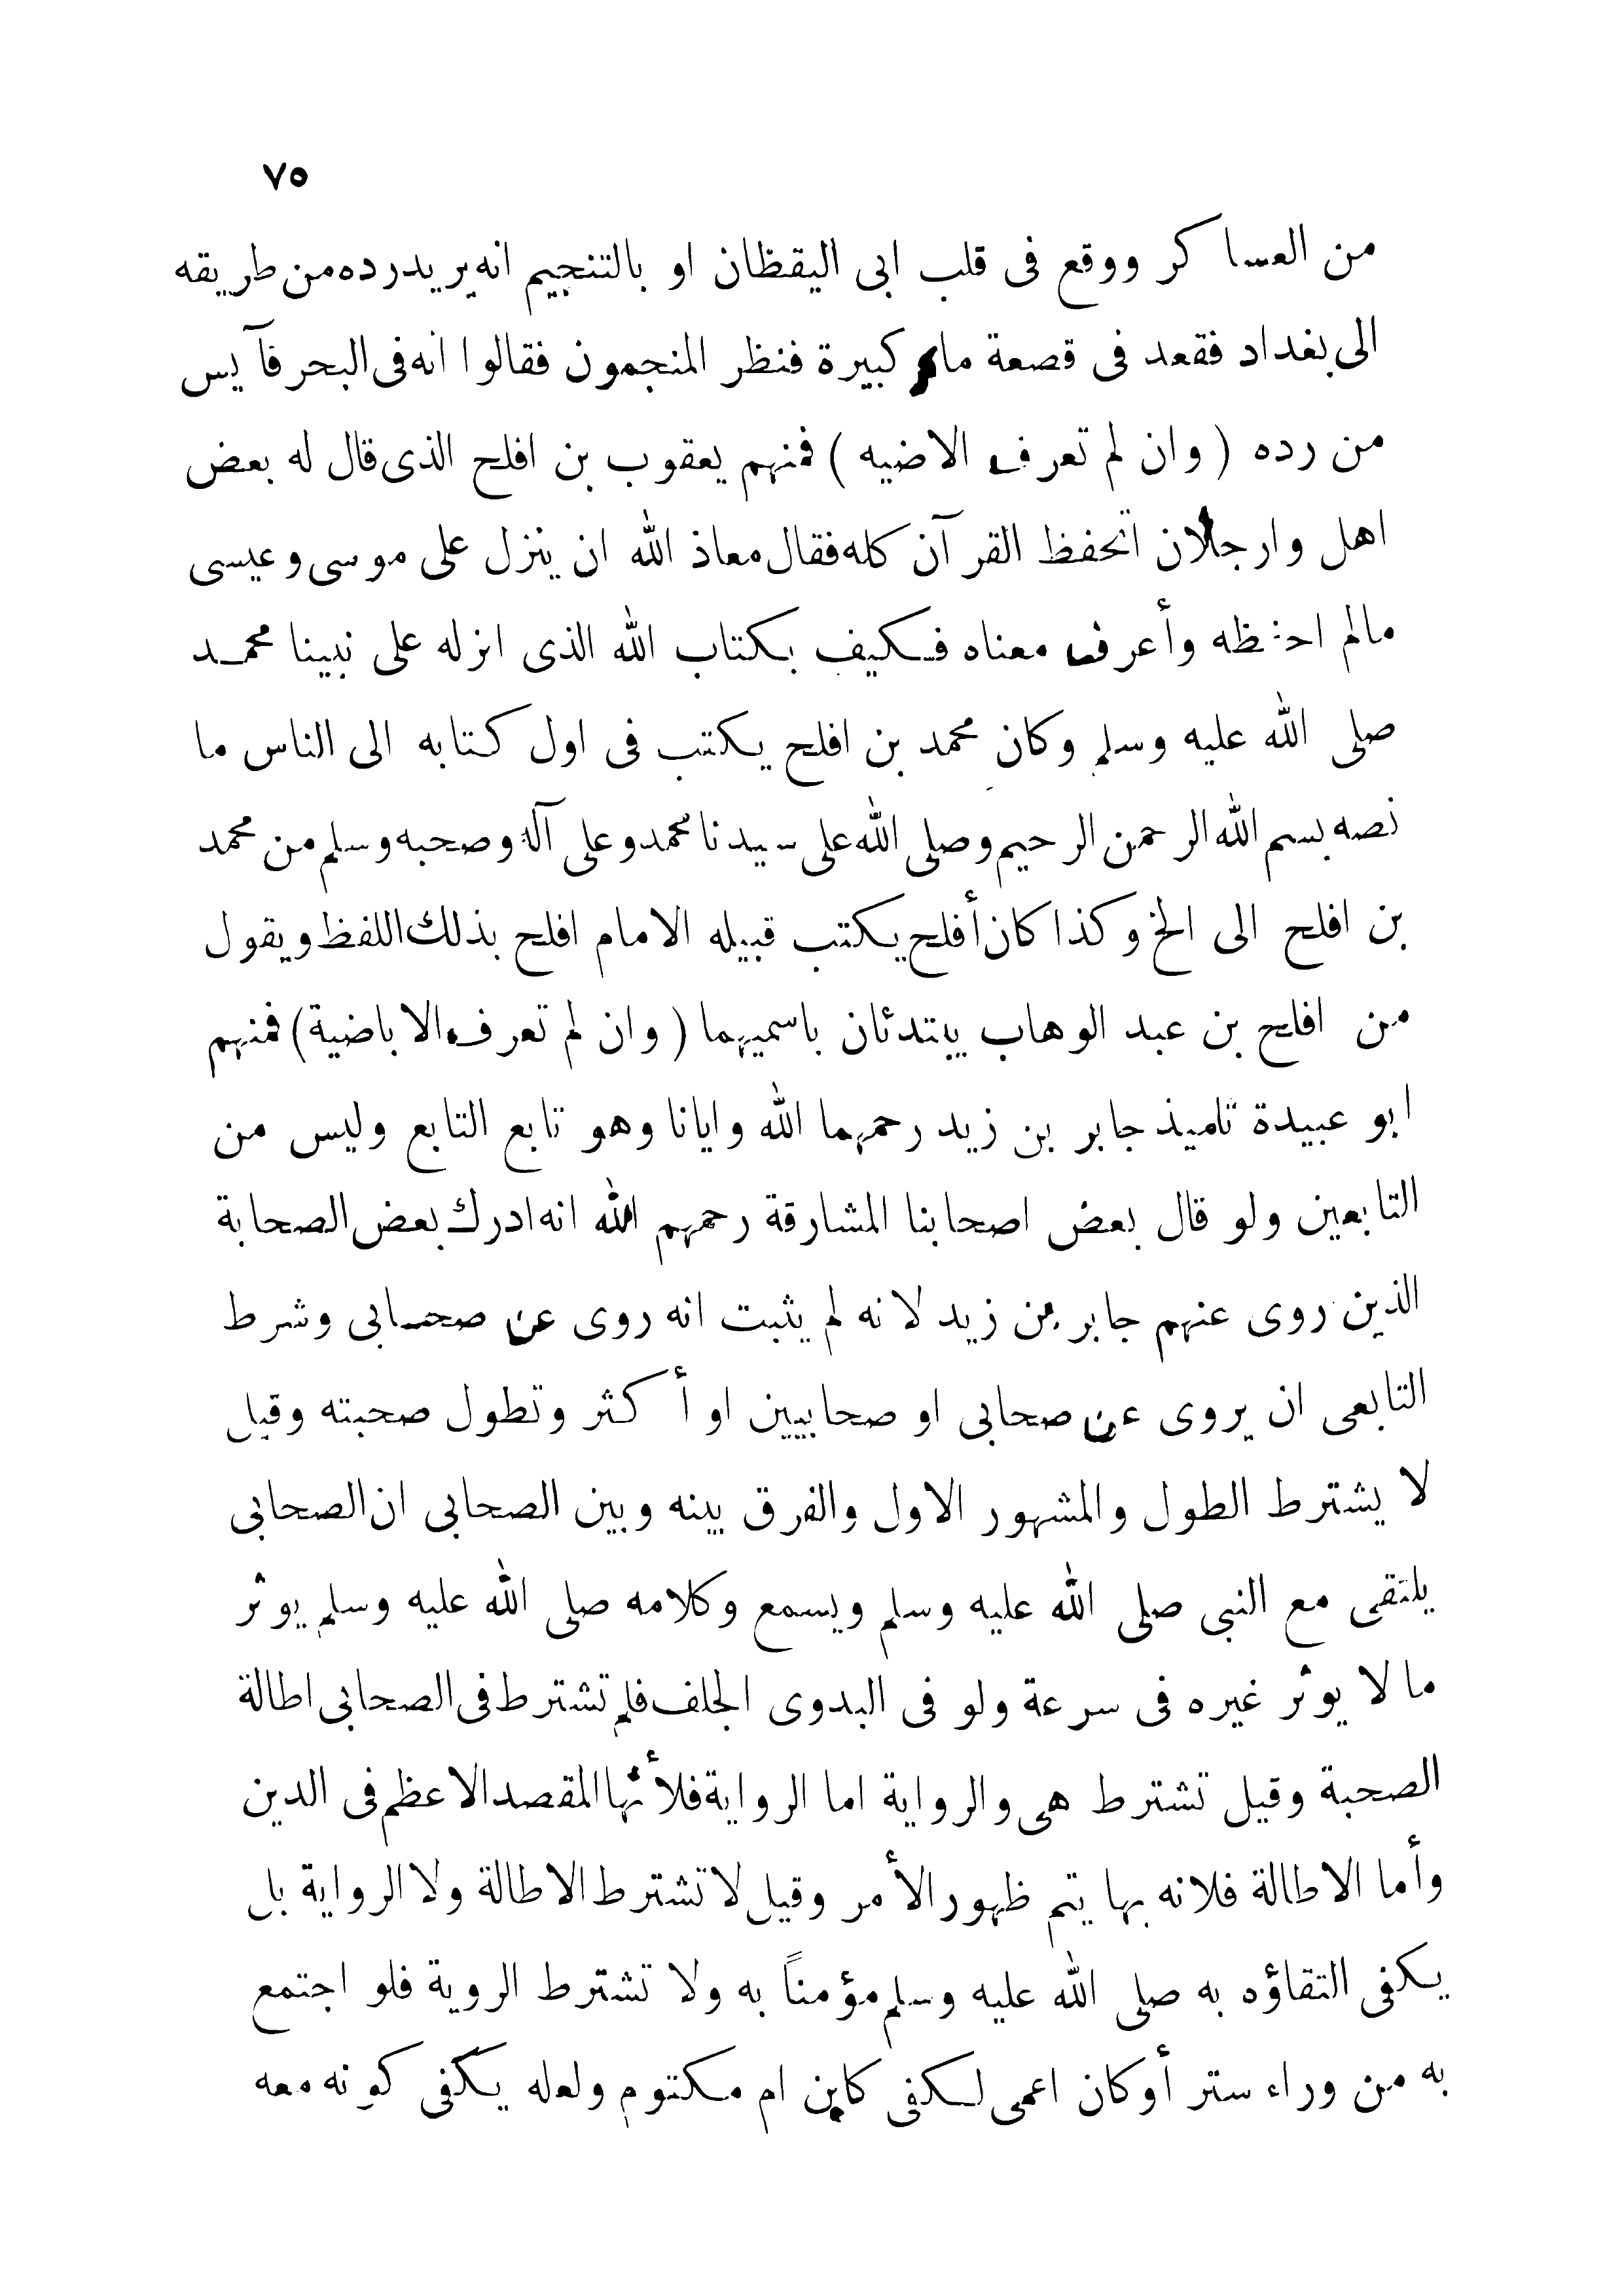 ٧٥
من العسا كر ووقع فى قلب ابى اليقظان او بالتنجيم انه يريد رده من طريقه
الى بغداد فقعد فى قصعة ماء كبيرة فنظر المنجمون فقالوا انه فى البحر فآيس
من رده ( وان لم تعرف الاضيه ) فمنهم يعقوب بن افلح الذى قال له بعض
اهل وارجلان اتحفظ القرآن كله فقال معاذ الله ان ينزل على موسى وعيسى
مالم احفظه وأعرف معناه فكيف بكتاب الله الذى انزله على نبينا محمد
صلى الله عليه وسلم وكان محمد بن افلح يكتب فى اول كتابه الى الناس ما
نصه بسم الله الرحمن الرحيم وصلى الله على سيدنا محمد وعلى آله وصحبه وسلم من محمد
بن افلح الى الخ وكذا كان أفلح يكتب قبيله الامام افلح بذلك اللفظ ويقول
من افلح بن عبد الوهاب يبتدئان باسميهما ( وان لم تعرف الاباضية ) فمنهم
ابو عبيدة تلميذ جابر بن زيد رحمهما الله وايانا وهو تابع التابع وليس من
التابعين ولو قال بعض اصحابنا المشارقة رحمهم الله انه ادرك بعض الصحابة
الذين روى عنهم جابر بن زيد لانه لم يثبت انه روى عن صحابى وشرط
التابعى ان يروى عن صحابى او صحابيين او أكثر وتطول صحبته وقيل
لا يشترط الطول والمشهور الاول والفرق بينه وبين الصحابى ان الصحابى
يلتقى مع النبى صلى الله عليه وسلم ويسمع وكلامه صلى الله عليه وسلم يوثر
ما لا يوثر غيره فى سرعة ولو فى البدوى الجلف فلم تشترط فى الصحابى اطالة
الصحبة وقيل تشترط هى والرواية اما الرواية فلأنها المقصد الاعظم فى الدين
وأما الاطالة فلانه بها يتم ظهور الأمر وقيل لا تشترط الاطالة ولا الرواية بل
يكفى التقاؤه به صلى الله عليه وسلم مؤمناً به ولا تشترط الروية فلو اجتمع
به من وراء ستر أو كان اعمى لكفى كابن ام مكتوم ولعله يكفى كونه معه